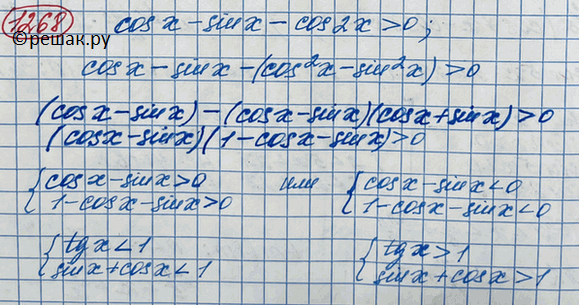 1268 cos x - sin x - cos 2x > 0;
©решак.ру
cos x - sin x - (cos²x - sin²x) > 0
(cos x - sin x) - (cos x - sin x)(cos x + sin x) > 0
(cos x - sin x)(1 - cos x - sin x) > 0
{ cos x - sin x > 0 или { cos x - sin x < 0
1 - cos x - sin x > 0 1 - cos x - sin x < 0
{ tg x < 1 { tg x > 1
sin x + cos x < 1 sin x + cos x > 1